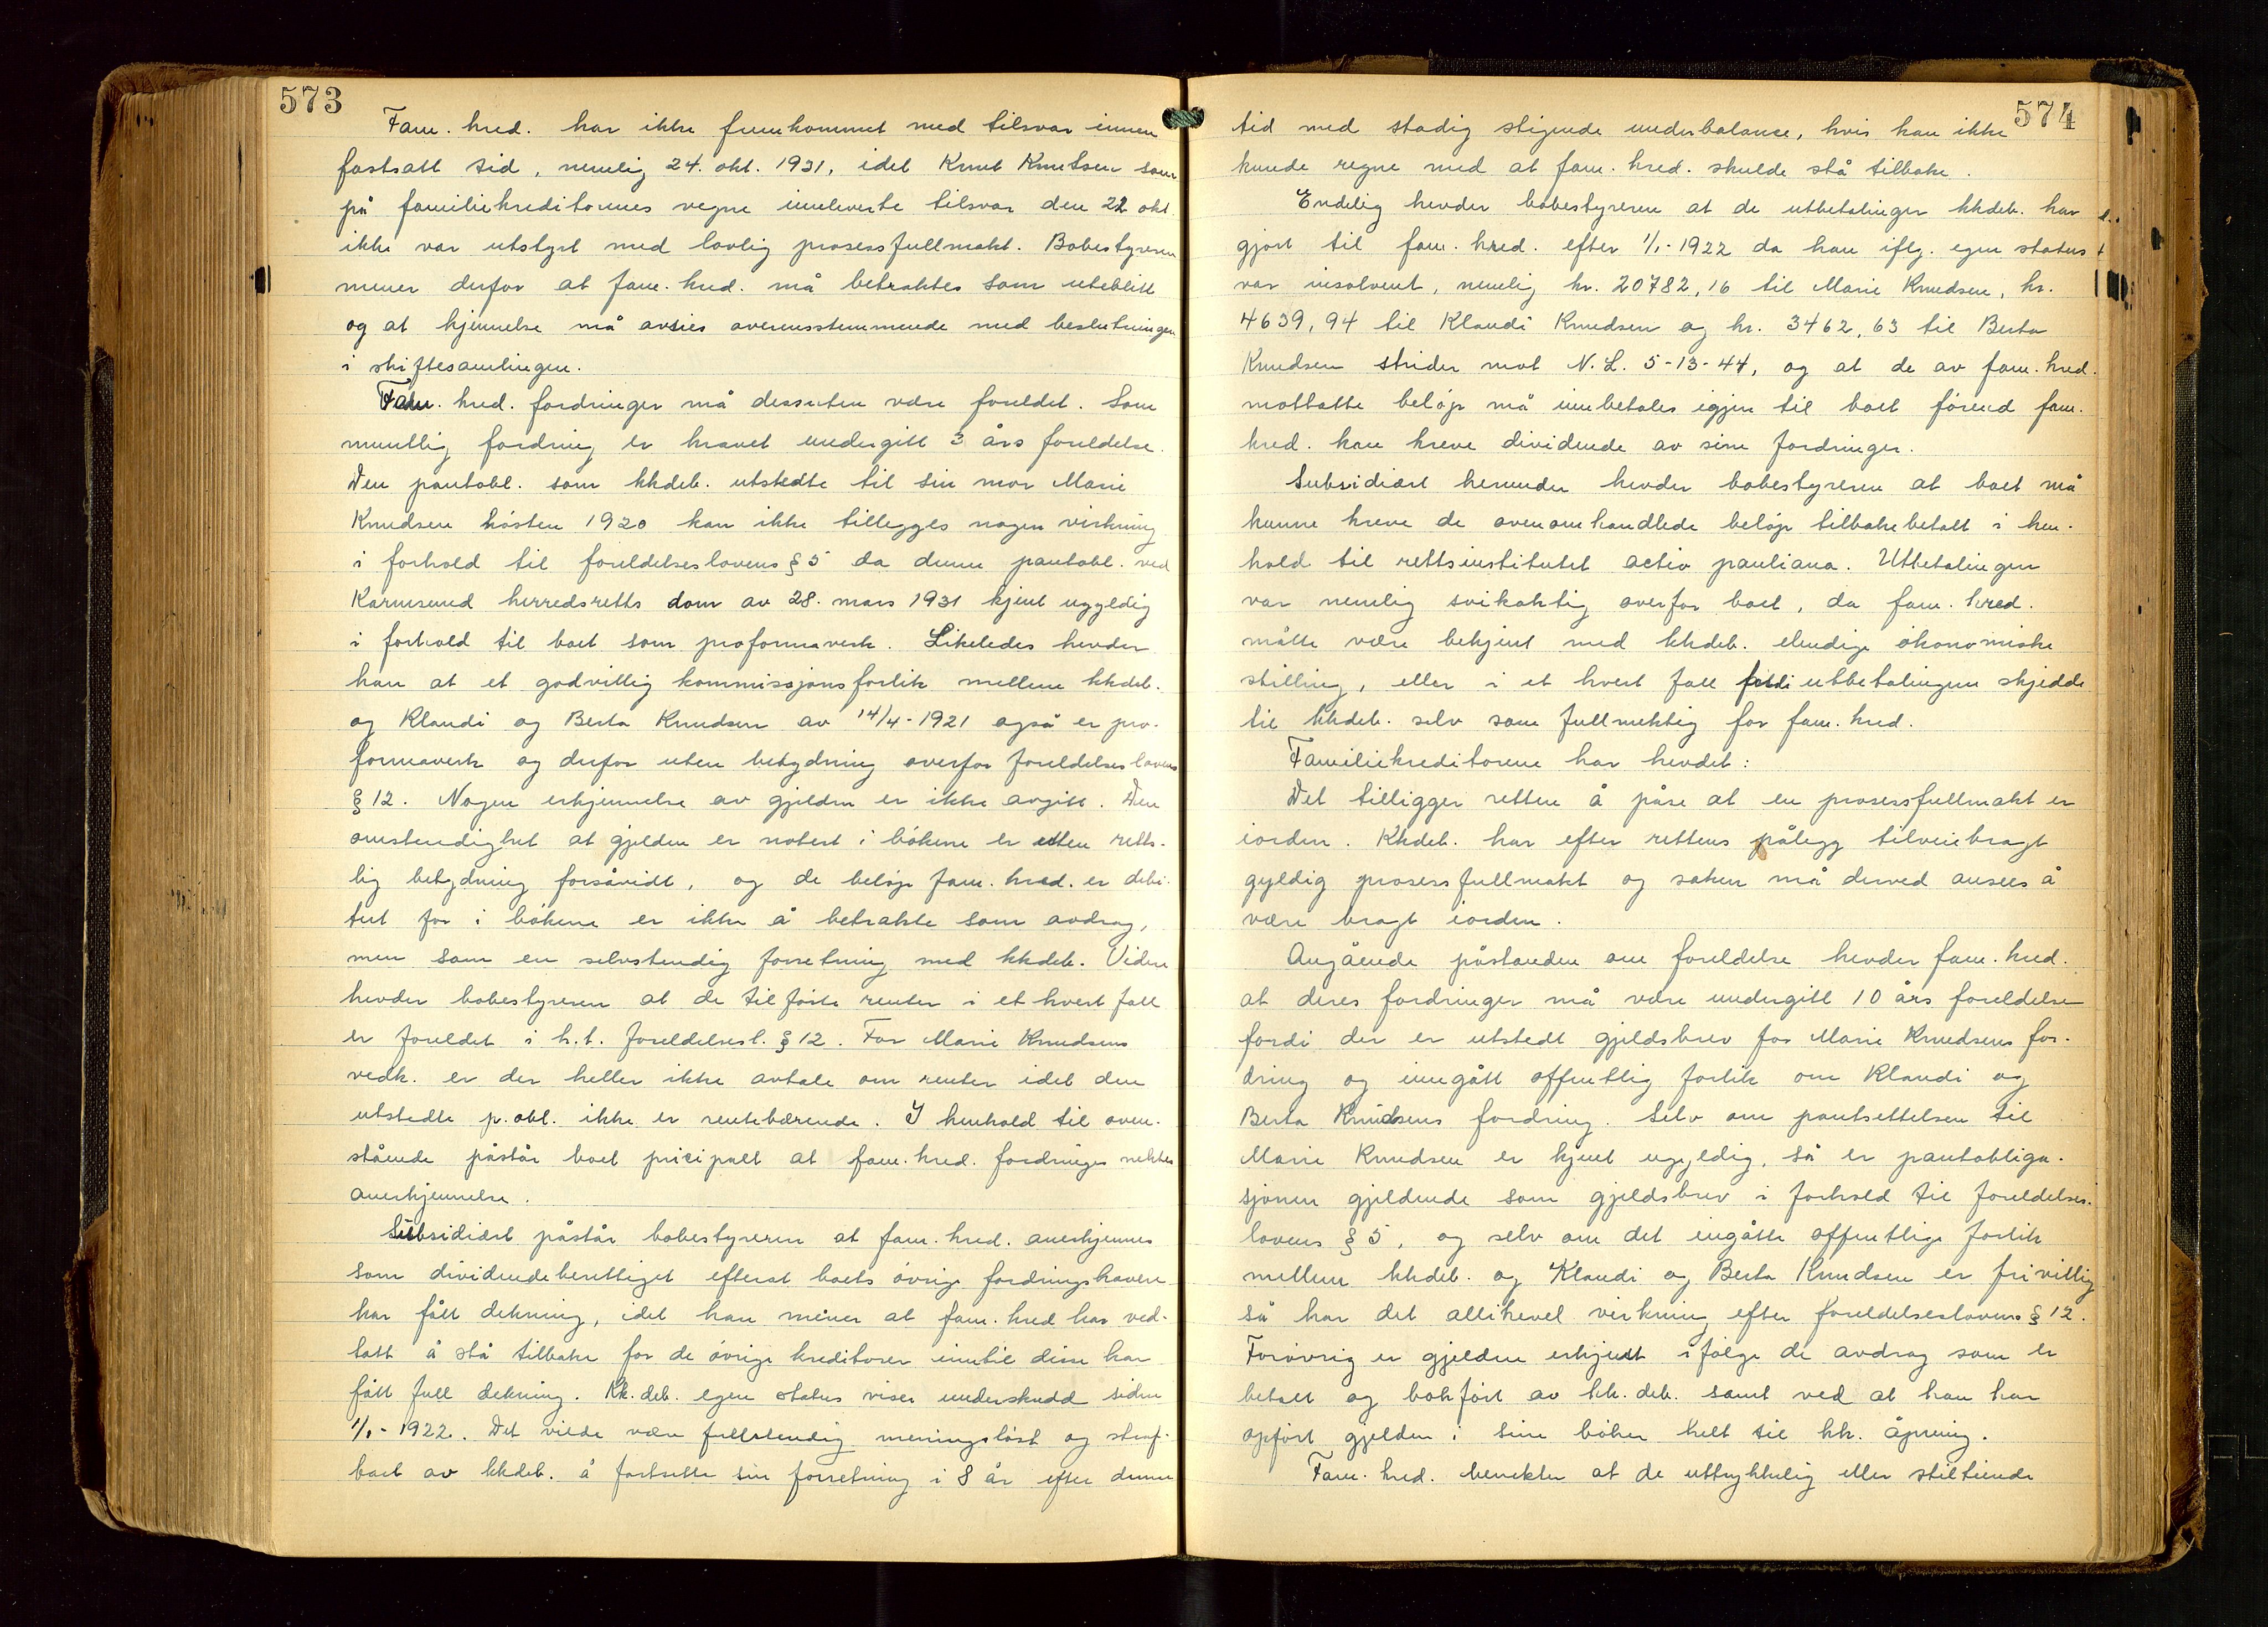 573
Fam. kred. har ikke fremkommet med tilsvar innen
fastsatt tid, nemlig 24. okt. 1931, idet Knut Knutsen som
på familiekreditorenes vegne innleverte tilsvar den 22 okt.
ikke var utstyrt med lovlig prosessfullmakt. Bobestyreren
mener derfor at fam. kred. må betraktes som uteblitt
og at kjennelse må avsies overensstemmende med beslutningen
i skiftesamlingen.
Fam. kred. fordringer må dessuten være foreldet. Som
muntlig fordring er kravet undergitt 3 års foreldelse.
Den pantobl. som kkdeb. utstedte til sin mor Marie
Knudsen høsten 1920 kan ikke tillegges nogen virkning
i forhold til foreldelseslovens § 5 da denne pantobl. ved
Karmsund herredsretts dom av 28. mars 1931 kjent ugyldig
i forhold til boet som proformaverk. Likeledes hevder
han at et godvillig kommissjonsforlik mellem kkdeb.
og Klaudi og Berta Knudsen av 14/4-1921 også er pro-
formaverk og derfor uten betydning overfor foreldelseslovens
§ 12. Nogen erkjennelse av gjelden er ikke avgitt. Den
omstendighet at gjelden er notert i bøkene er uten retts-
lig betydning forsåvidt, og de beløp fam. kred. er debi-
tert for i bøkene er ikke å betrakte som avdrag,
men som en selvstendig forretning med kkdeb. Videre
hevder bobestyreren at de tilførte renter i et hvert fall
er foreldet i h.t. foreldelsesl. § 12. For Marie Knudsens
vedk. er der heller ikke avtale om renter idet den
utstedte p.obl. ikke er rentebærende. I henhold til oven-
stående påstår boet pricipalt at fam. kred. fordringer nektes
anerkjennelse.
Subsidiært påstår bobestyreren at fam. kred. anerkjennes
som dividendeberettiget efterat boets øvrige fordringshavere
har fått dekning, idet han mener at fam. kred har ved-
tatt å stå tilbake for de øvrige kreditorer inntil disse har
fått full dekning. Kk. deb. egen status viser underskudd siden
1/1-1922. Det vilde være fullstendig meningsløst og straf-
bart av kkdeb. å fortsette sin forretning i 8 år efter denne
574
tid med stadig stigende underbalance, hvis han ikke
kunde regne med at fam. kred. skulde stå tilbake.
Endelig hevder bobestyreren at de utbetalinger kkdeb. har
gjort til fam. kred. efter 1/1-1922 da han iflg. egen status
var insolvent, nemlig kr. 20782,16 til Marie Knudsen, kr.
4639,94 til Klaudi Knudsen og kr. 3462,63 til Berta
Knudsen strider mot N.L. 5-13-44, og at de av fam. kred.
mottatte beløp må innbetales igjen til boet førend fam.
kred. kan kreve dividende av sine fordringer.
Subsidiært herunder hevder bobestyreren at boet må
kunne kreve de ovenomhandlede beløp tilbakebetalt i hen-
hold til rettsinstitutet actio pauliana. Utbetalingen
var nemlig svikaktig overfor boet, da fam. kred.
måtte være bekjent med kkdeb. elendige økonomiske
stilling, eller i et hvert fall fordi utbetalingen skjedde
til kkdeb. selv som fullmektig for fam. kred.
Familiekreditorene har hevdet:
Det tilligger retten å påse at en prosessfullmakt er
iorden. Kkdeb. har efter rettens pålegg tilveiebragt
gyldig prosessfullmakt og saken må derved ansees å
være bragt iorden.
Angående påstanden om foreldelse hevder fam. kred.
at deres fordringer må være undergitt 10 års foreldelse
fordi der er utstedt gjeldsbrev for Marie Knudsens for-
dring og inngått offentlig forlik om Klaudi og
Berta Knudsens fordring. Selv om pantsettelsen til
Marie Knudsen er kjent ugyldig, så er pantobliga-
sjonen gjeldende som gjeldsbrev i forhold til foreldelses-
lovens § 5, og selv om det ingåtte offentlige forlik
mellem kkdeb. og Klaudi og Berta Knudsen er frivillig
så har det allikevel virkning efter foreldelseslovens § 12.
Forøvrig er gjelden erkjent ifølge de avdrag som er
betalt og bokført av kk. deb. samt ved at han har
opført gjelden i sine bøker helt til kk. åpning.
Fam. kred. benekter at de uttrykkelig eller stiltiende